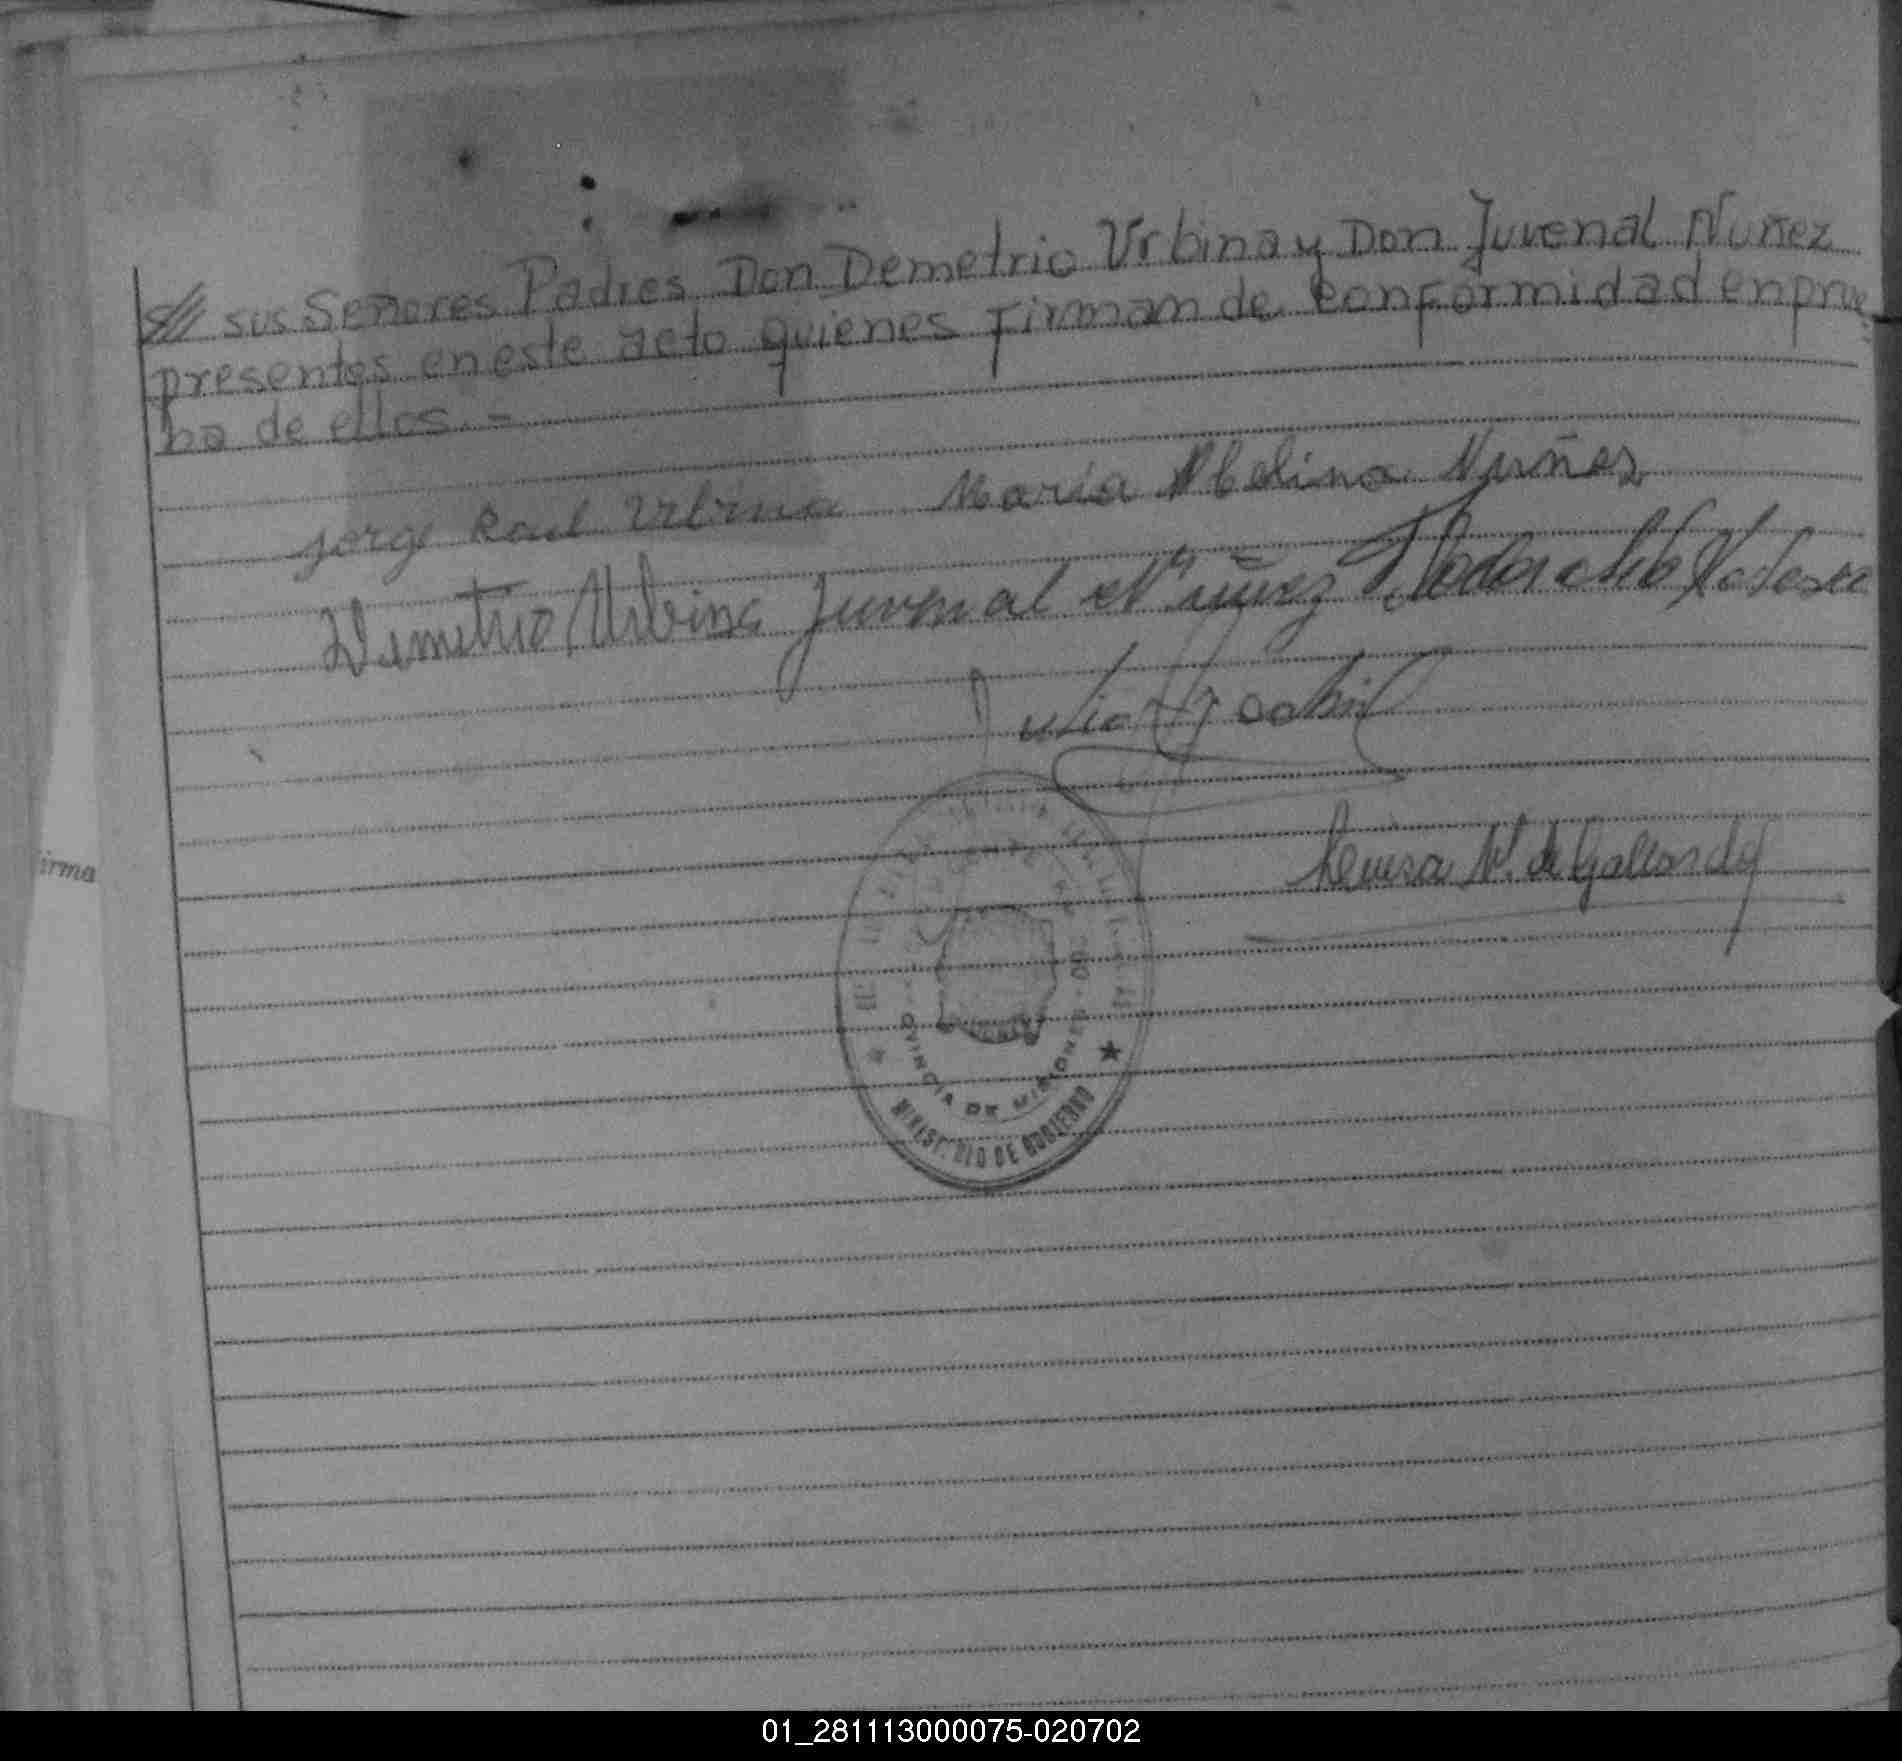 /// sus Señores Padres Don Demetrio Urbina y Don Juvenal Nuñez
presentes en este acto quienes firman de conformidad en prue
ba de ellos. =
Jorge Raul Urbina María Abelina Nuñez
Demetrio Urbina Juvenal Núñez
Julio
N. de Gallardo
irma
PROVINCIA DE MISIONES
MINISTERIO DE GOBIERNO
01_281113000075-020702